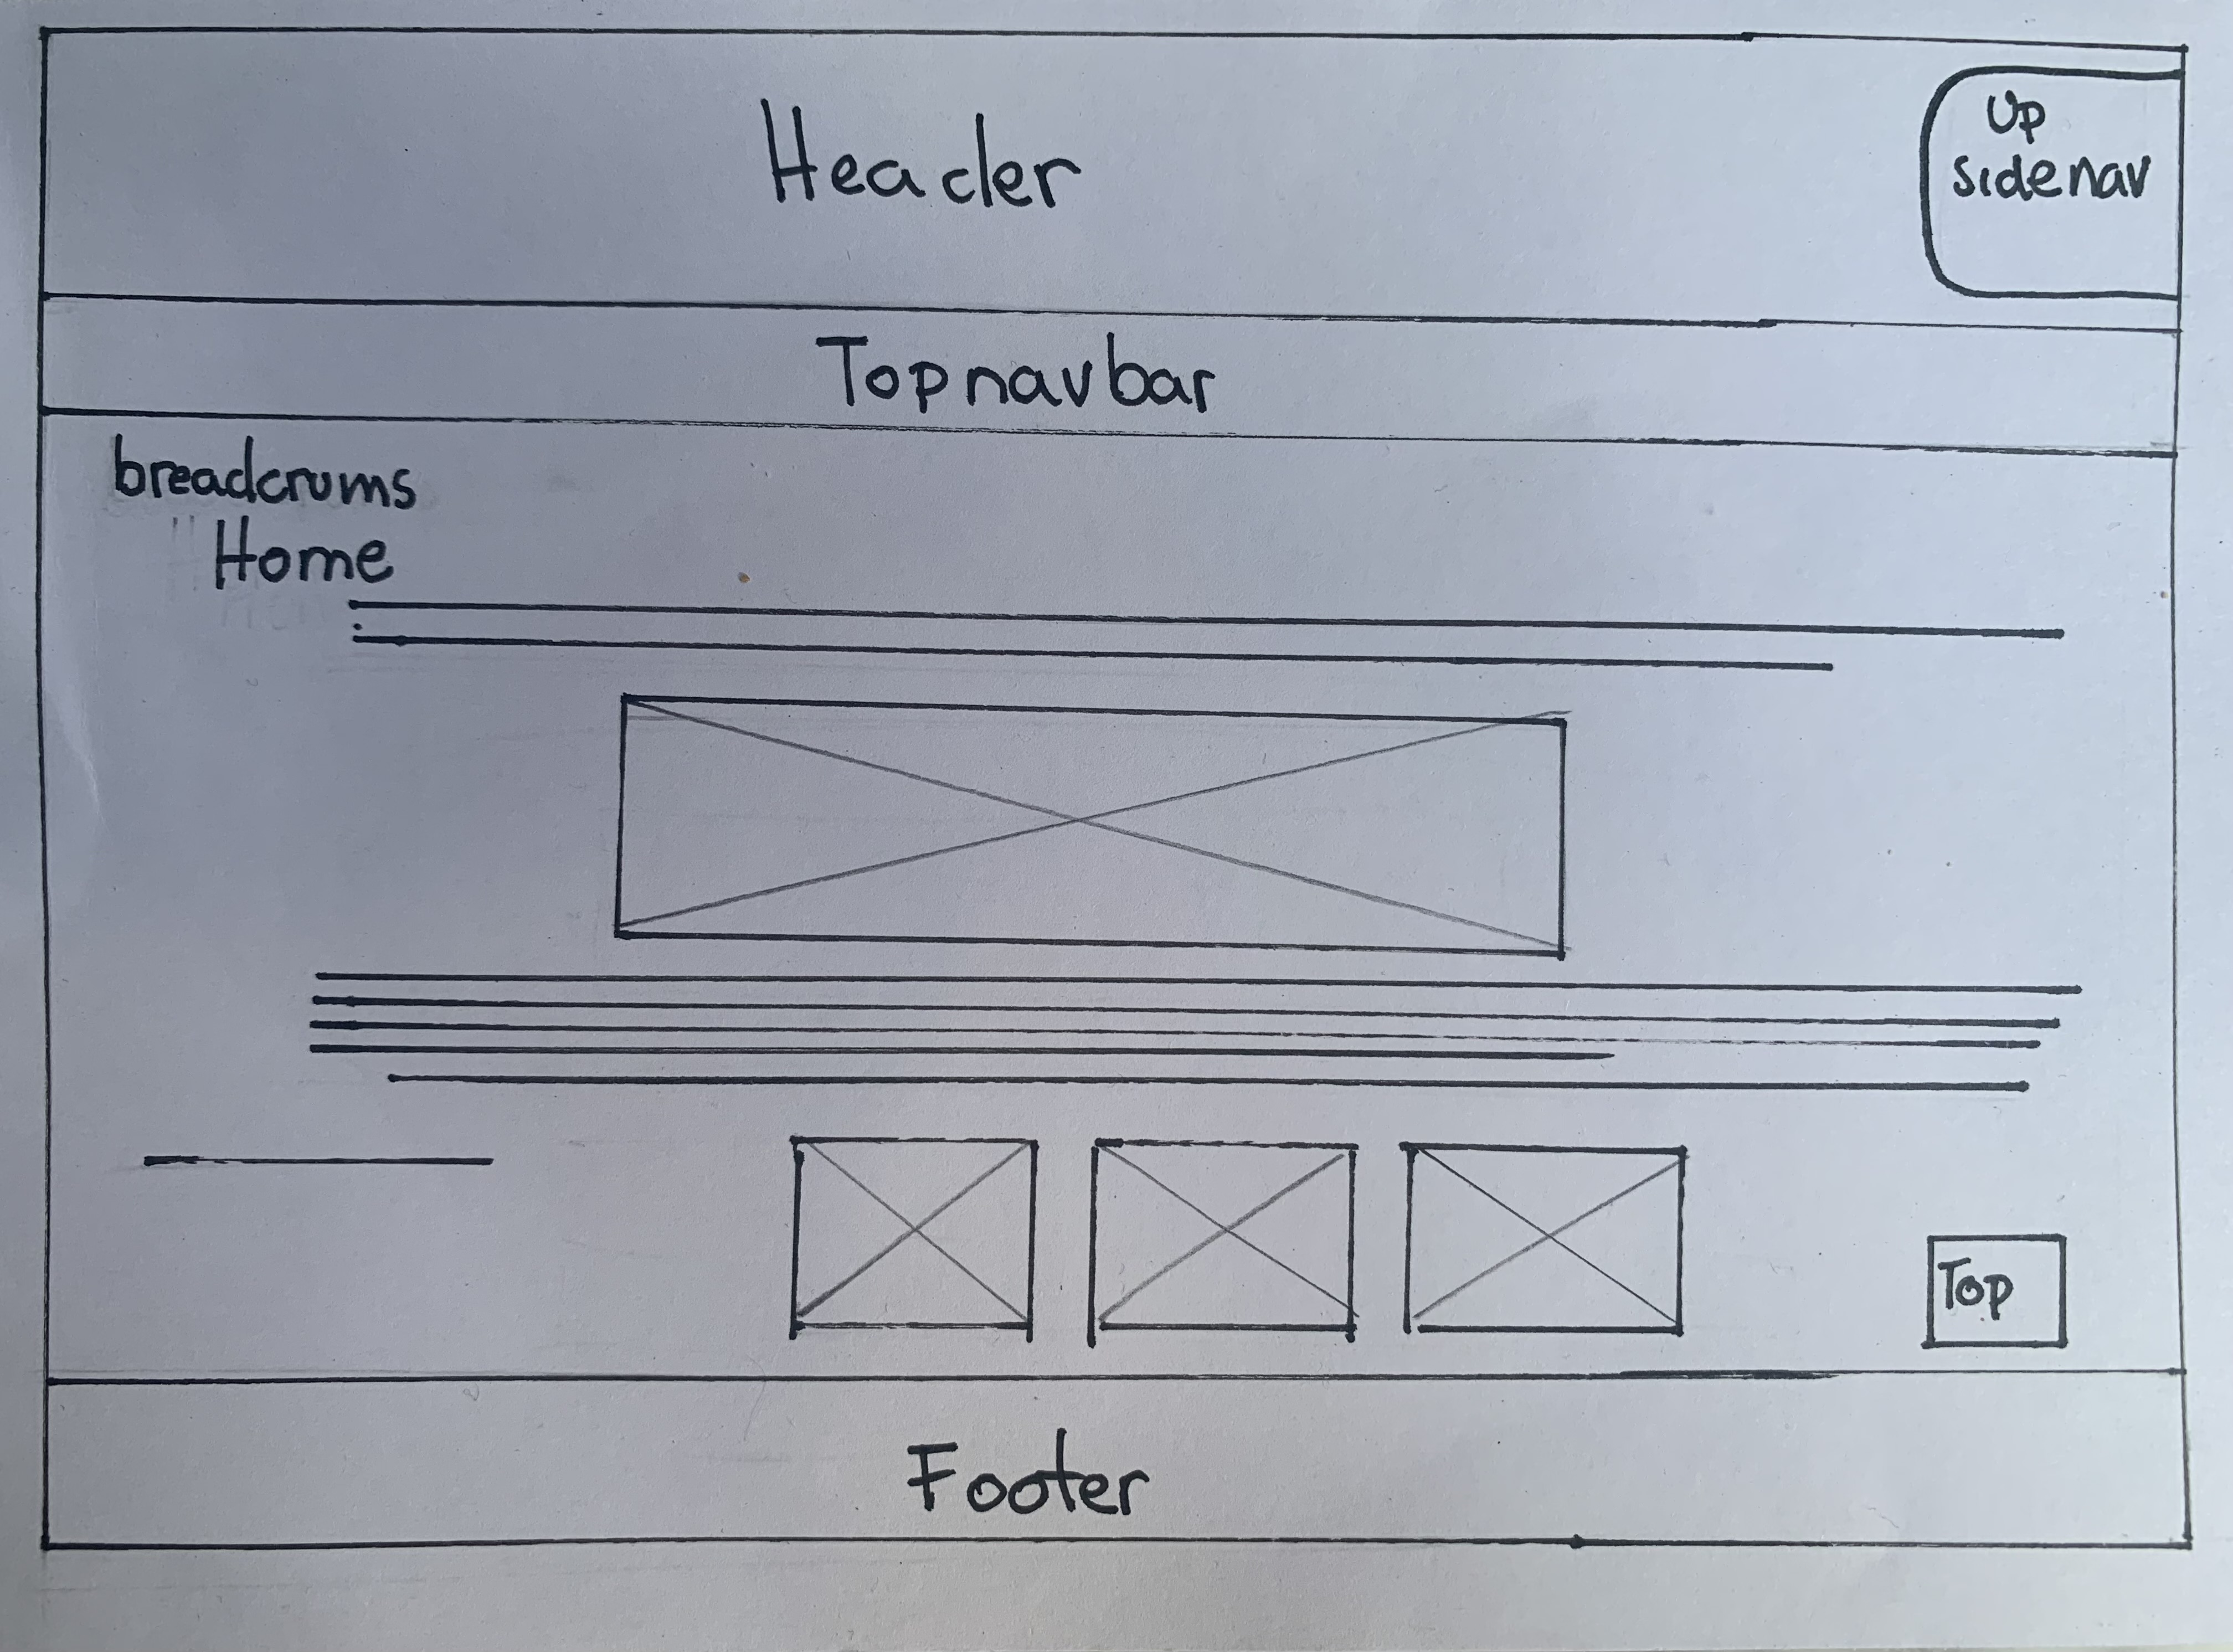 Header
Up
sidenav
Topnavbar
breadcrums
Home
Top
Footer